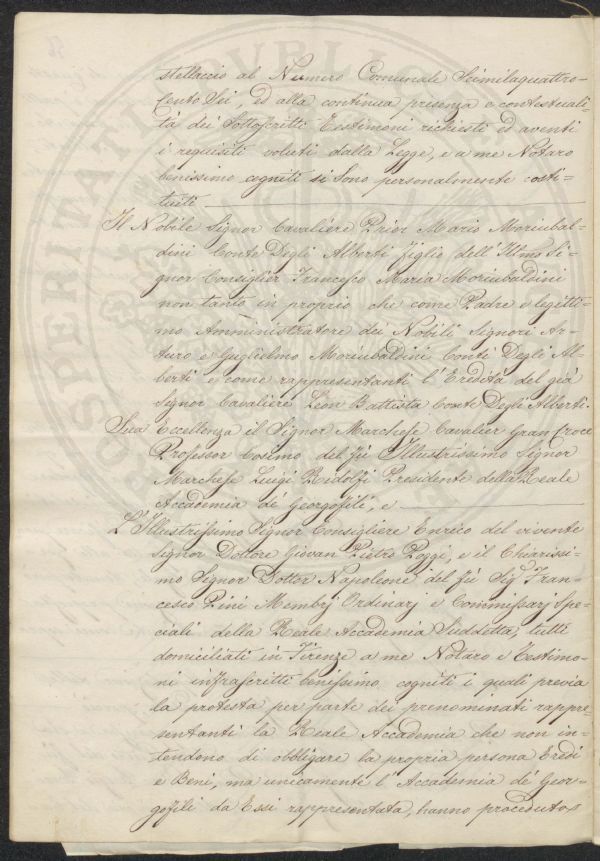 stellaccio al Numero Comunale Seimilaquattro-
cento Sei, ed alla continua presenza e contestuali-
tà dei Sottoscritti Testimoni richiesti ed aventi
i requisiti voluti dalla Legge, e a me Notaro
benissimo cogniti si sono personalmente costi-
tuiti
Il Nobile Signor Cavaliere Prior Mario Moriubal-
dini Conte Degli Alberti figlio dell'Illmo Si-
gnor Consiglier Francesco Maria Moriubaldini
non tanto in proprio che come Padre e legitti-
mo Amministratore dei Nobili Signori Ar-
turo e Guglielmo Moriubaldini Conti Degli Al-
berti e come rappresentanti l'Eredità del già
Signor Cavaliere Leon Battista Conte Degli Alberti.
Sua Eccellenza il Signor Marchese Cavalier Gran Croce
Professor Cosimo del fu Illustrissimo Signor
Marchese Luigi Ridolfi Presidente della Reale
Accademia de Georgofili, e
L'Illustrissimo Signor Consigliere Enrico del vivente
Signor Dottore Giovan Pietro Poggi, e il Chiarissi-
mo Signor Dottor Napoleone del fu Sig. Fran-
cesco Pini Membrj Ordinarj e Commissarj Spe-
ciali della Reale Accademia Suddetta, tutti
domiciliati in Firenze a me Notaro e Testimo-
ni infrascritti benissimo cogniti i quali previa
la protesta per parte dei prenominati rappre-
sentanti la Reale Accademia che non in-
tendono di obbligare la propria persona Eredi
e Beni, ma unicamente l'Accademia de' Geor-
gofili da Essi rappresentata, hanno proceduto
PROSPERITATI PVBLICAE